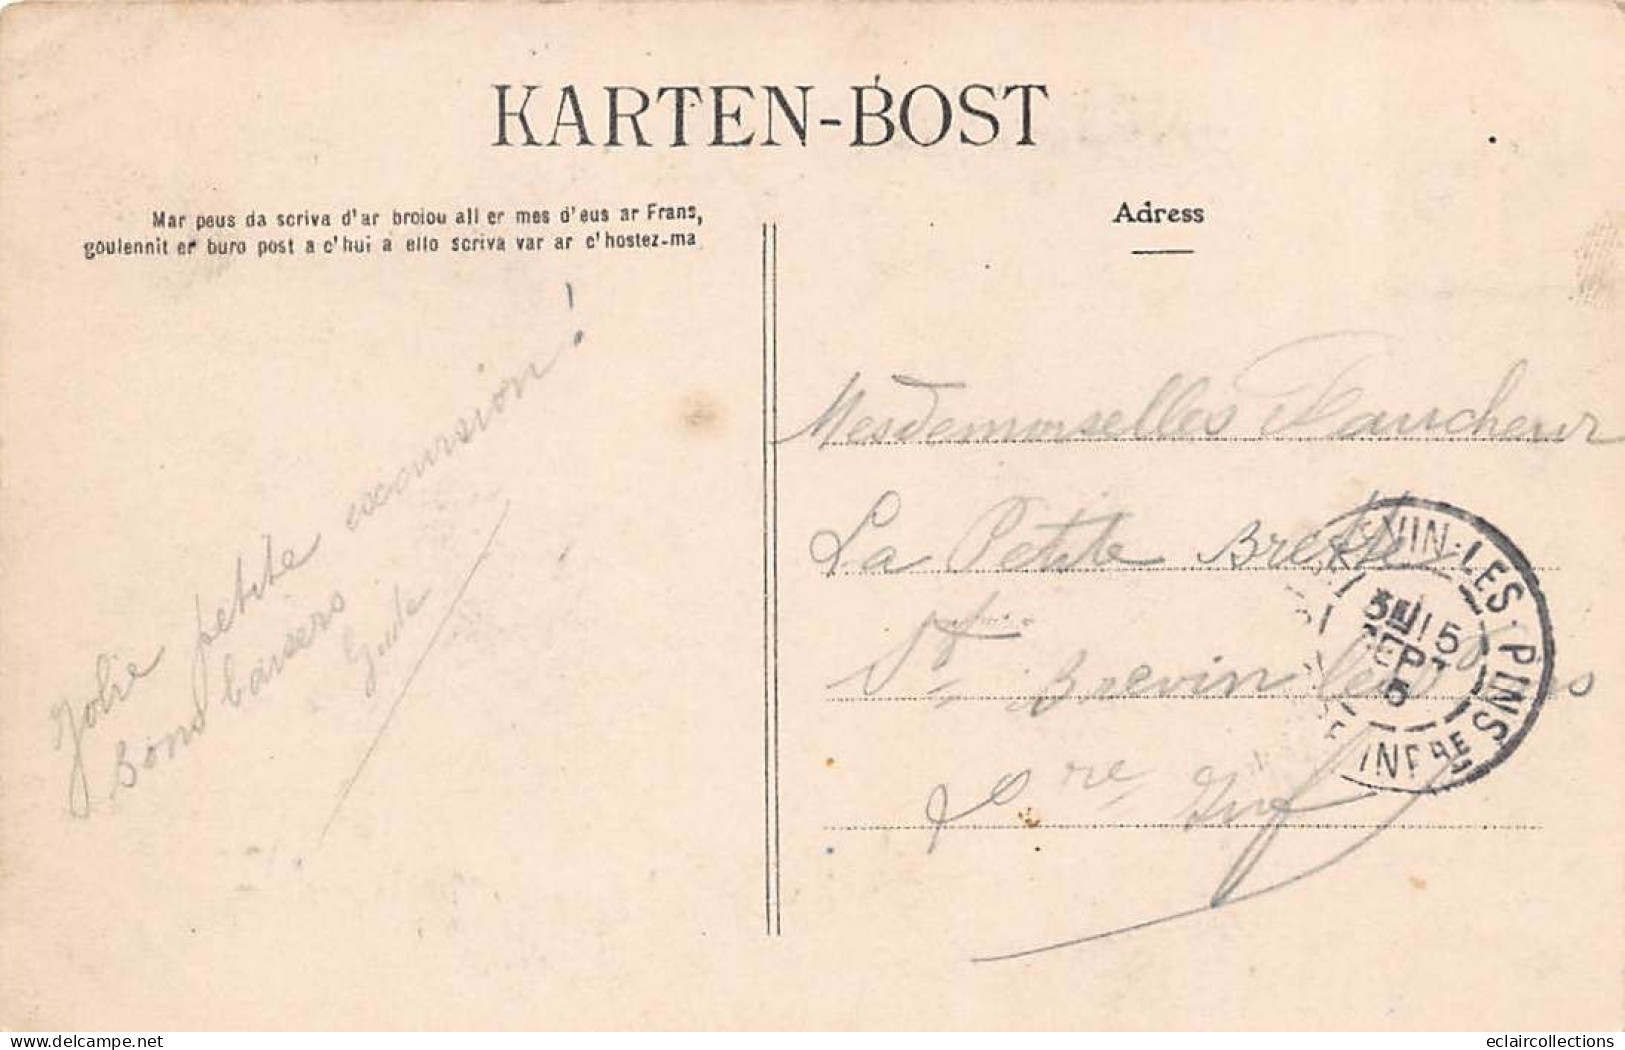 KARTEN-BOST
Mar peus da scriva d'ar broiou all er mes d'eus ar Frans,
goulennit er buro post a c'hui a ello scriva var ar c'hostez-ma
Adress
Jolie petite excursion!
Bons baisers
Mesdemoiselles Faucheur
La Petite Brette
St Brevin les Pins
Lre Inf
VIN-LES-PINS
5
SEPT
5
INFRE
eclaircollections